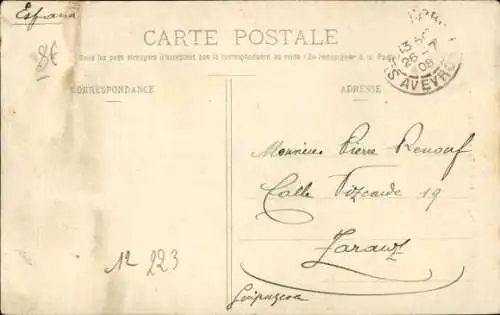 España
8€
CARTE POSTALE
Tous les pays étrangers n'acceptent pas la correspondance au recto (Se renseigner à la Poste)
CORRESPONDANCE
ADRESSE
13
26-7
08
AVEYRON
Monsieur Pierre Renouf
Calle Vizcaide 19
Zarauz
Guipuzcoa
N 223